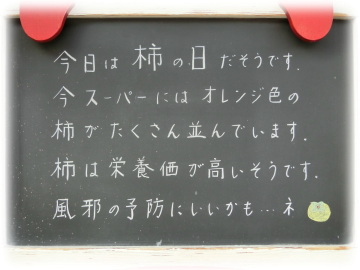 今日は柿の日だそうです.
今スーパーには オレンジ色の
柿がたくさん並んでいます.
柿は栄養価が高いそうです.
風邪の予防にいいかも…ネ